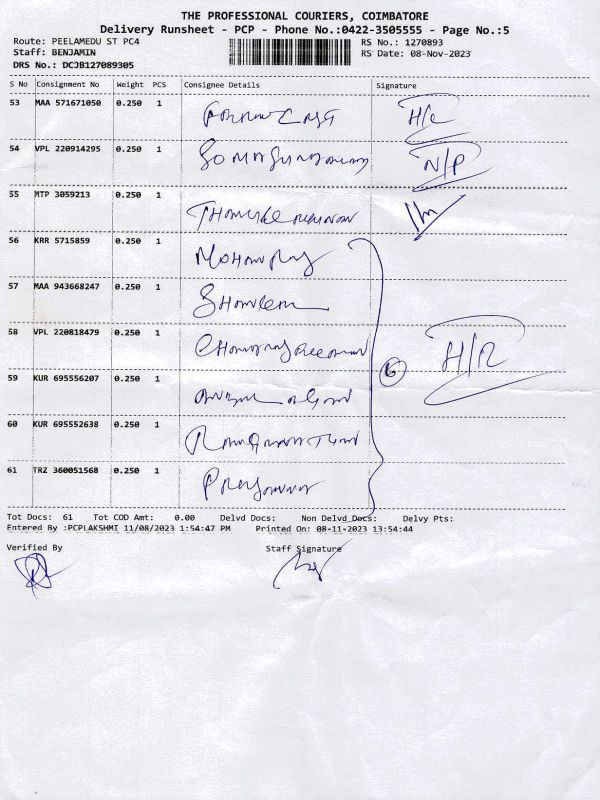 THE PROFESSIONAL COURIERS, COIMBATORE
Delivery Runsheet - PCP - Phone No.:0422-3505555 - Page No.:5
Route: PEELAMEDU ST PC4
RS No.: 1270893
Staff: BENJAMIN
RS Date: 08-Nov-2023
DRS No.: DCJB127089305
S No Consignment No Weight PCS Consignee Details Signature
53 MAA 571671050 0.250 1
54 VPL 220914295 0.250 1 N/P
55 MTP 3059213 0.250 1
56 KRR 5715859 0.250 1 MOHANRAJ
57 MAA 943668247 0.250 1
58 VPL 220818479 0.250 1 H/R
59 KUR 695556207 0.250 1 6
60 KUR 695552638 0.250 1
61 TRZ 360051568 0.250 1
Tot Docs: 61 Tot COD Amt: 0.00 Delvd Docs: Non Delvd Docs: Delvy Pts:
Entered By :PCPLAKSHMI 11/08/2023 1:54:47 PM Printed On: 08-11-2023 13:54:44
Verified By Staff Signature